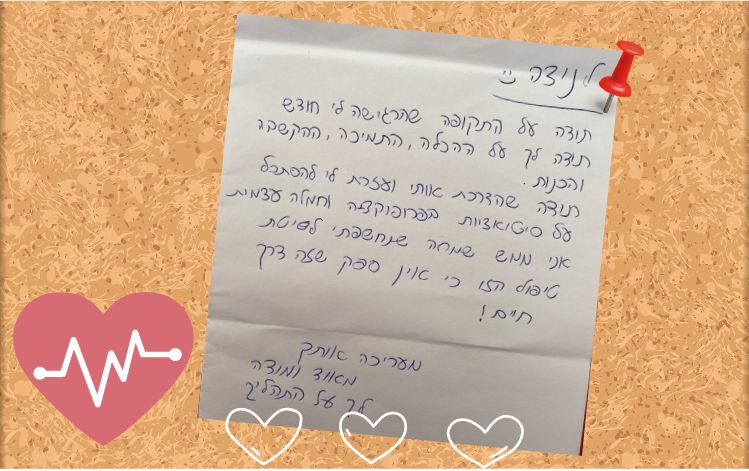 לניצה
תודה על התקופה שהרגישה לי חודש
תודה לך על ההכלה, התמיכה, ההקשבה
והכנות.
תודה שהדרכת אותי ועזרת לי להסתכל
על סיטיאציות בפרופורציה וחמלה עצמית
אני ממש שמחה שנחשפתי לשיטת
טיפול הזו כי אין ספק שזה דרך
חיים!
מעריכה אותך
מאוד ומודה
לך על התהליך